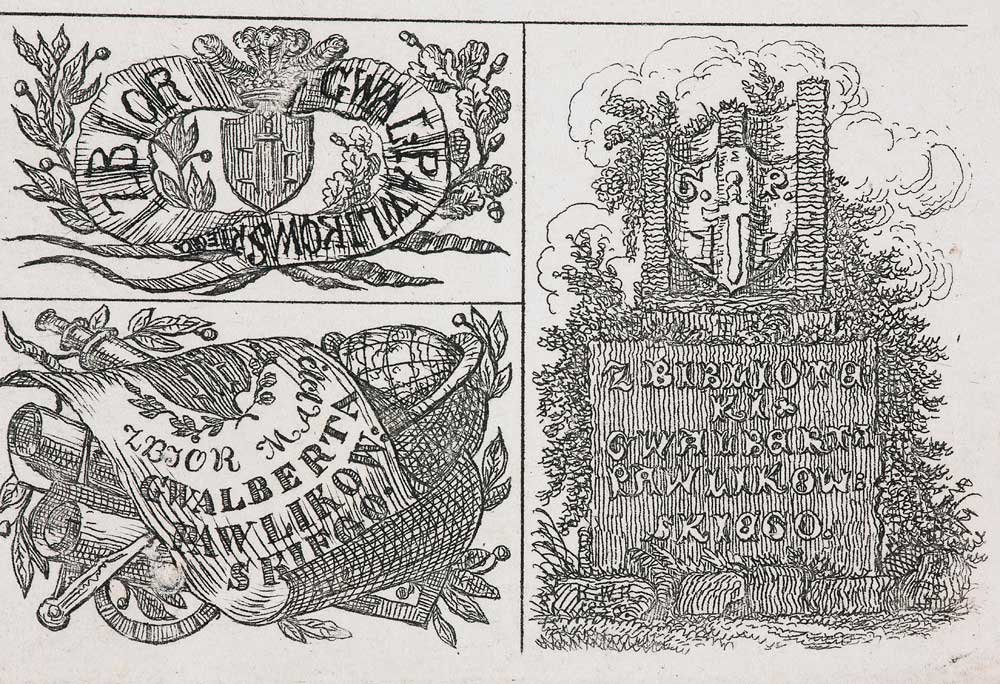 ZBIOR GWALT. PAWLIKOWSKIEGO
ZBIOR MAPP
GWALBERTA
PAWLIKOW.
SKIEGO.
G. P.
Z BIBLIOTE
KI
GWALBERTA
PAWLIKOW:
SKIEGO.